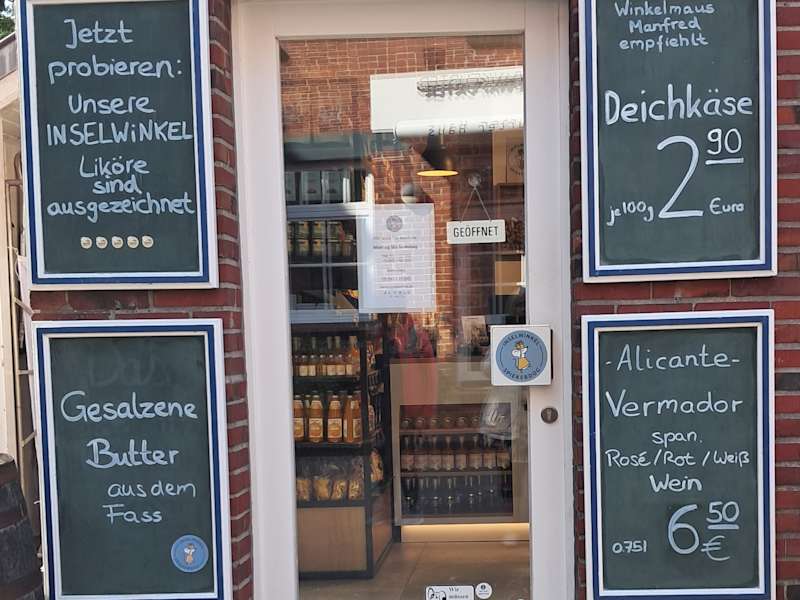 Jetzt
probieren:
Unsere
INSELWiNKEL
Liköre
sind
ausgezeichnet
Gesalzene
Butter
aus dem
Fass
GEÖFFNET
INSELWINKEL
SPIEKEROOG
Wir
müssen
Winkelmaus
Manfred
empfiehlt
Deichkäse
2 90
je 100g Euro
-Alicante-
Vermador
span.
Rosé/Rot/Weiß
Wein
6 50
0.75l €